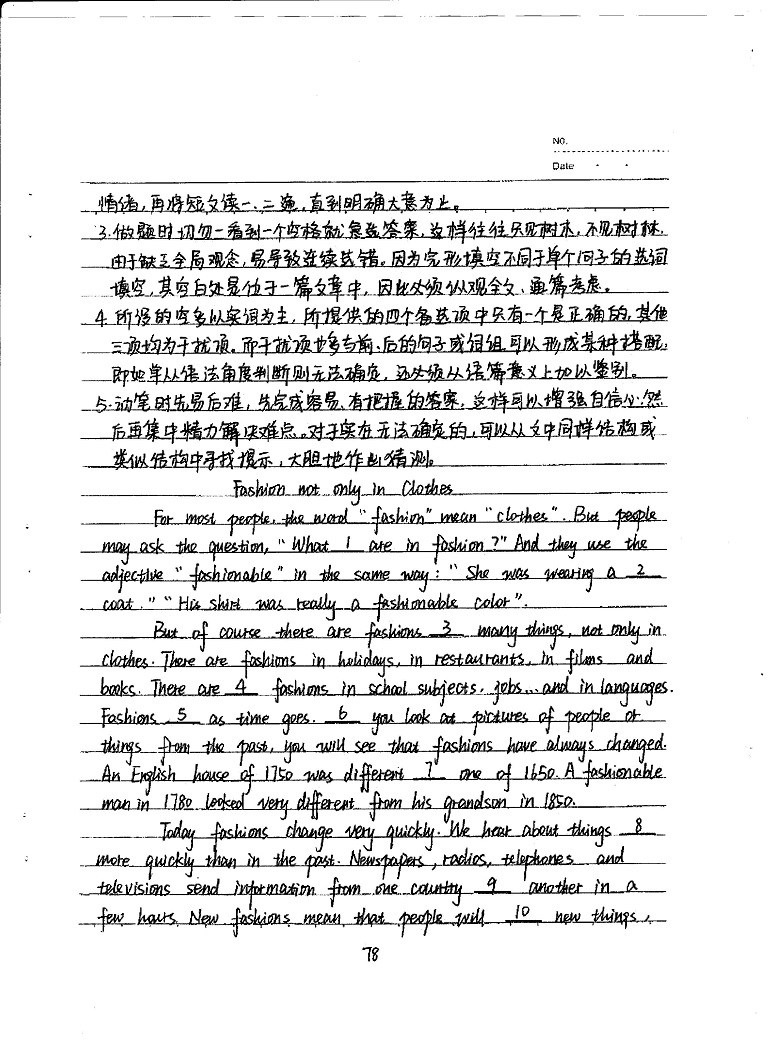 NO.
Date
情绪,再将短文读一、二遍,直到明确大意为止。
3.做题时切勿一看到一个空格就急选答案,这样往往只见树木,不见树林,
由于缺乏全局观念,易导致连续选错。因为完形填空不同于单个句子的选词
填空,其空白处是位于一篇文章中,因此必须纵观全文、通篇考虑。
4.所设的空多以实词为主,所提供的四个备选项中只有一个是正确的,其他
三项均为干扰项。而干扰项也多与前、后的句子或词组可以形成某种搭配,
即使单从语法角度判断则无法确定,还必须从语篇意义上加以鉴别。
5.动笔时先易后难,先完成容易、有把握的答案,这样可以增强自信心,然
后再集中精力解决难点。对于实在无法确定的,可以从文中同样结构或
类似结构中寻找提示,大胆地作出猜测。
Fashion not only in Clothes
For most people, the word "fashion" mean "clothes". But people
may ask the question, "What 1 are in fashion?" And they use the
adjective "fashionable" in the same way: "She was wearing a 2
coat." "His shirt was really a fashionable color".
But of course there are fashions 3 many things, not only in
clothes. There are fashions in holidays, in restaurants, in films and
books. There are 4 fashions in school subjects, jobs...and in languages.
Fashions 5 as time goes. 6 you look at pictures of people or
things from the past, you will see that fashions have always changed.
An English house of 1750 was different 7 one of 1650. A fashionable
man in 1780 looked very different from his grandson in 1850.
Today fashions change very quickly. We hear about things 8
more quickly than in the past. Newspapers, radios, telephones and
televisions send information from one country 9 another in a
few hours. New fashions mean that people will 10 new things,
78